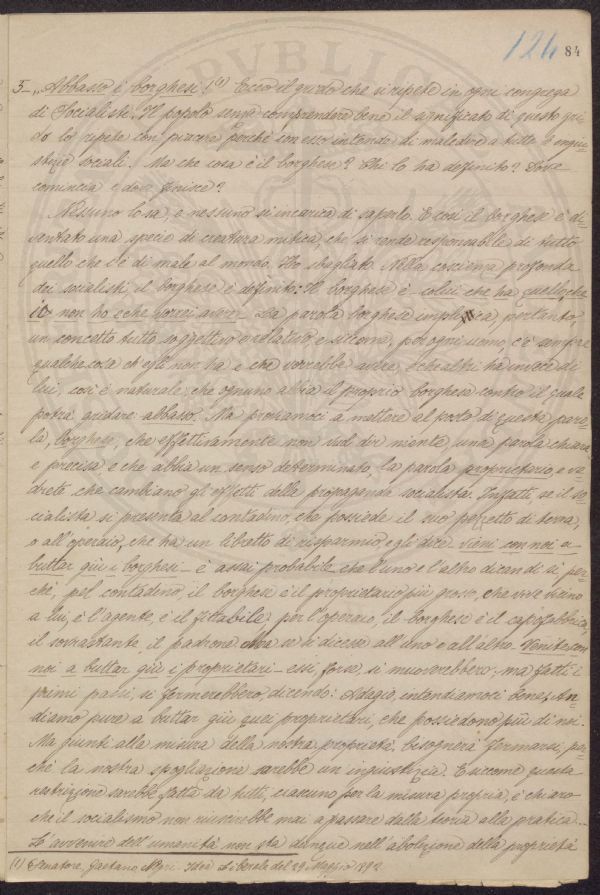 124 84
5 – „Abbasso i borghesi! (1) Ecco il grido che si ripete in ogni congrega
di Socialisti. Il popolo senza comprendere bene il significato di questo gri-
do lo ripete con piacere perché con esso intende di maledire a tutte le ingiu-
stizie sociali. Ma che cosa è il borghese? Chi lo ha definito? Dove
comincia e dove finisce?
Nessuno lo sa, e nessuno si incarica di saperlo. E così il borghese è di-
ventato una specie di creatura mitica, che si rende responsabile di tutto
quello che c'è di male al mondo. Ho sbagliato. Nella coscienza profonda
dei socialisti, il borghese è definito: Il borghese è – colui che ha quello che
io non ho e che vorrei avere – La parola borghese implica, pertanto,
un concetto tutto soggettivo e relativo, e siccome, per ogni uomo, c'è sempre
qualche cosa ch'egli non ha e che vorrebbe avere, e che altri ha invece di
lui, così è naturale che ognuno abbia il proprio borghese contro il quale
potrà gridare: abbasso. Ma proviamoci a mettere al posto di questa paro-
la, borghese, che effettivamente non vuol dir niente, una parola chiara
e precisa e che abbia un senso determinato, la parola proprietario, e ve-
drete che cambiano gli effetti della propaganda socialista. Infatti, se il so-
cialista si presenta al contadino, che possiede il suo pezzetto di terra,
o all'operaio, che ha un libretto di risparmio, e gli dice – vieni con noi a
buttar giù i borghesi – è assai probabile che l'uno e l'altro dicon di sì per-
ché, pel contadino, il borghese è il proprietario più grosso, che vive vicino
a lui, è l'agente, è il fittabile; per l'operaio, il borghese è il capofabbrica,
il sovrastante, il padrone. Ma se si dicesse all'uno e all'altro – Venite con
noi a buttar giù i proprietari – essi, forse, si muoverebbero; ma fatti i
primi passi, si fermerebbero, dicendo: Adagio, intendiamoci bene; An-
diamo pure a buttar giù quei proprietari, che possiedono più di noi.
Ma giunti alla misura della nostra proprietà, bisognerà fermarsi, per-
ché la nostra spogliazione sarebbe un ingiustizia. E siccome questa
restrizione sarebbe fatta da tutti, ciascuno per la misura propria, è chiaro
che il socialismo non riuscirebbe mai a passare dalla teoria alla pratica...
L'avvenire dell'umanità non sta dunque nell'abolizione della proprietà
(1) Senatore, Gaetano Negri – Idea Liberale del 29 Maggio 1892